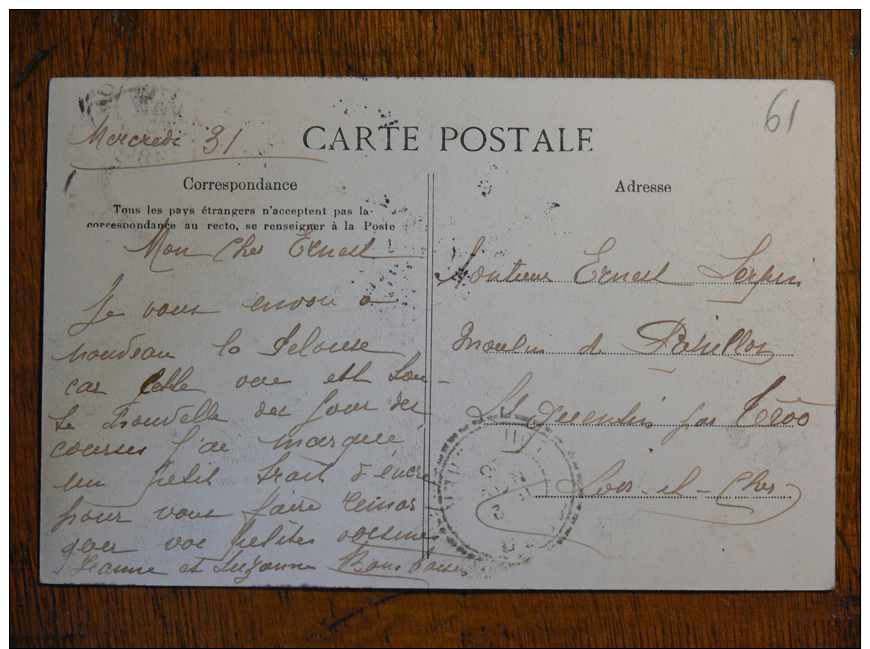 61
Mercredi 31
CARTE POSTALE
Correspondance
Tous les pays étrangers n'acceptent pas la
correspondance au recto, se renseigner à la Poste
Mon Cher Ernest
Je vous envoie à
nouveau la Pelouse
car cette vue est tou-
te nouvelle des jour des
courses j'ai marqué
un petit trait d'encre
pour vous faire remar-
quer vos petites voisines
Jeanne et Suzanne Bons
Adresse
Monsieur Ernest
Moulin de
St Quentin par Troo
Loir-et-Cher